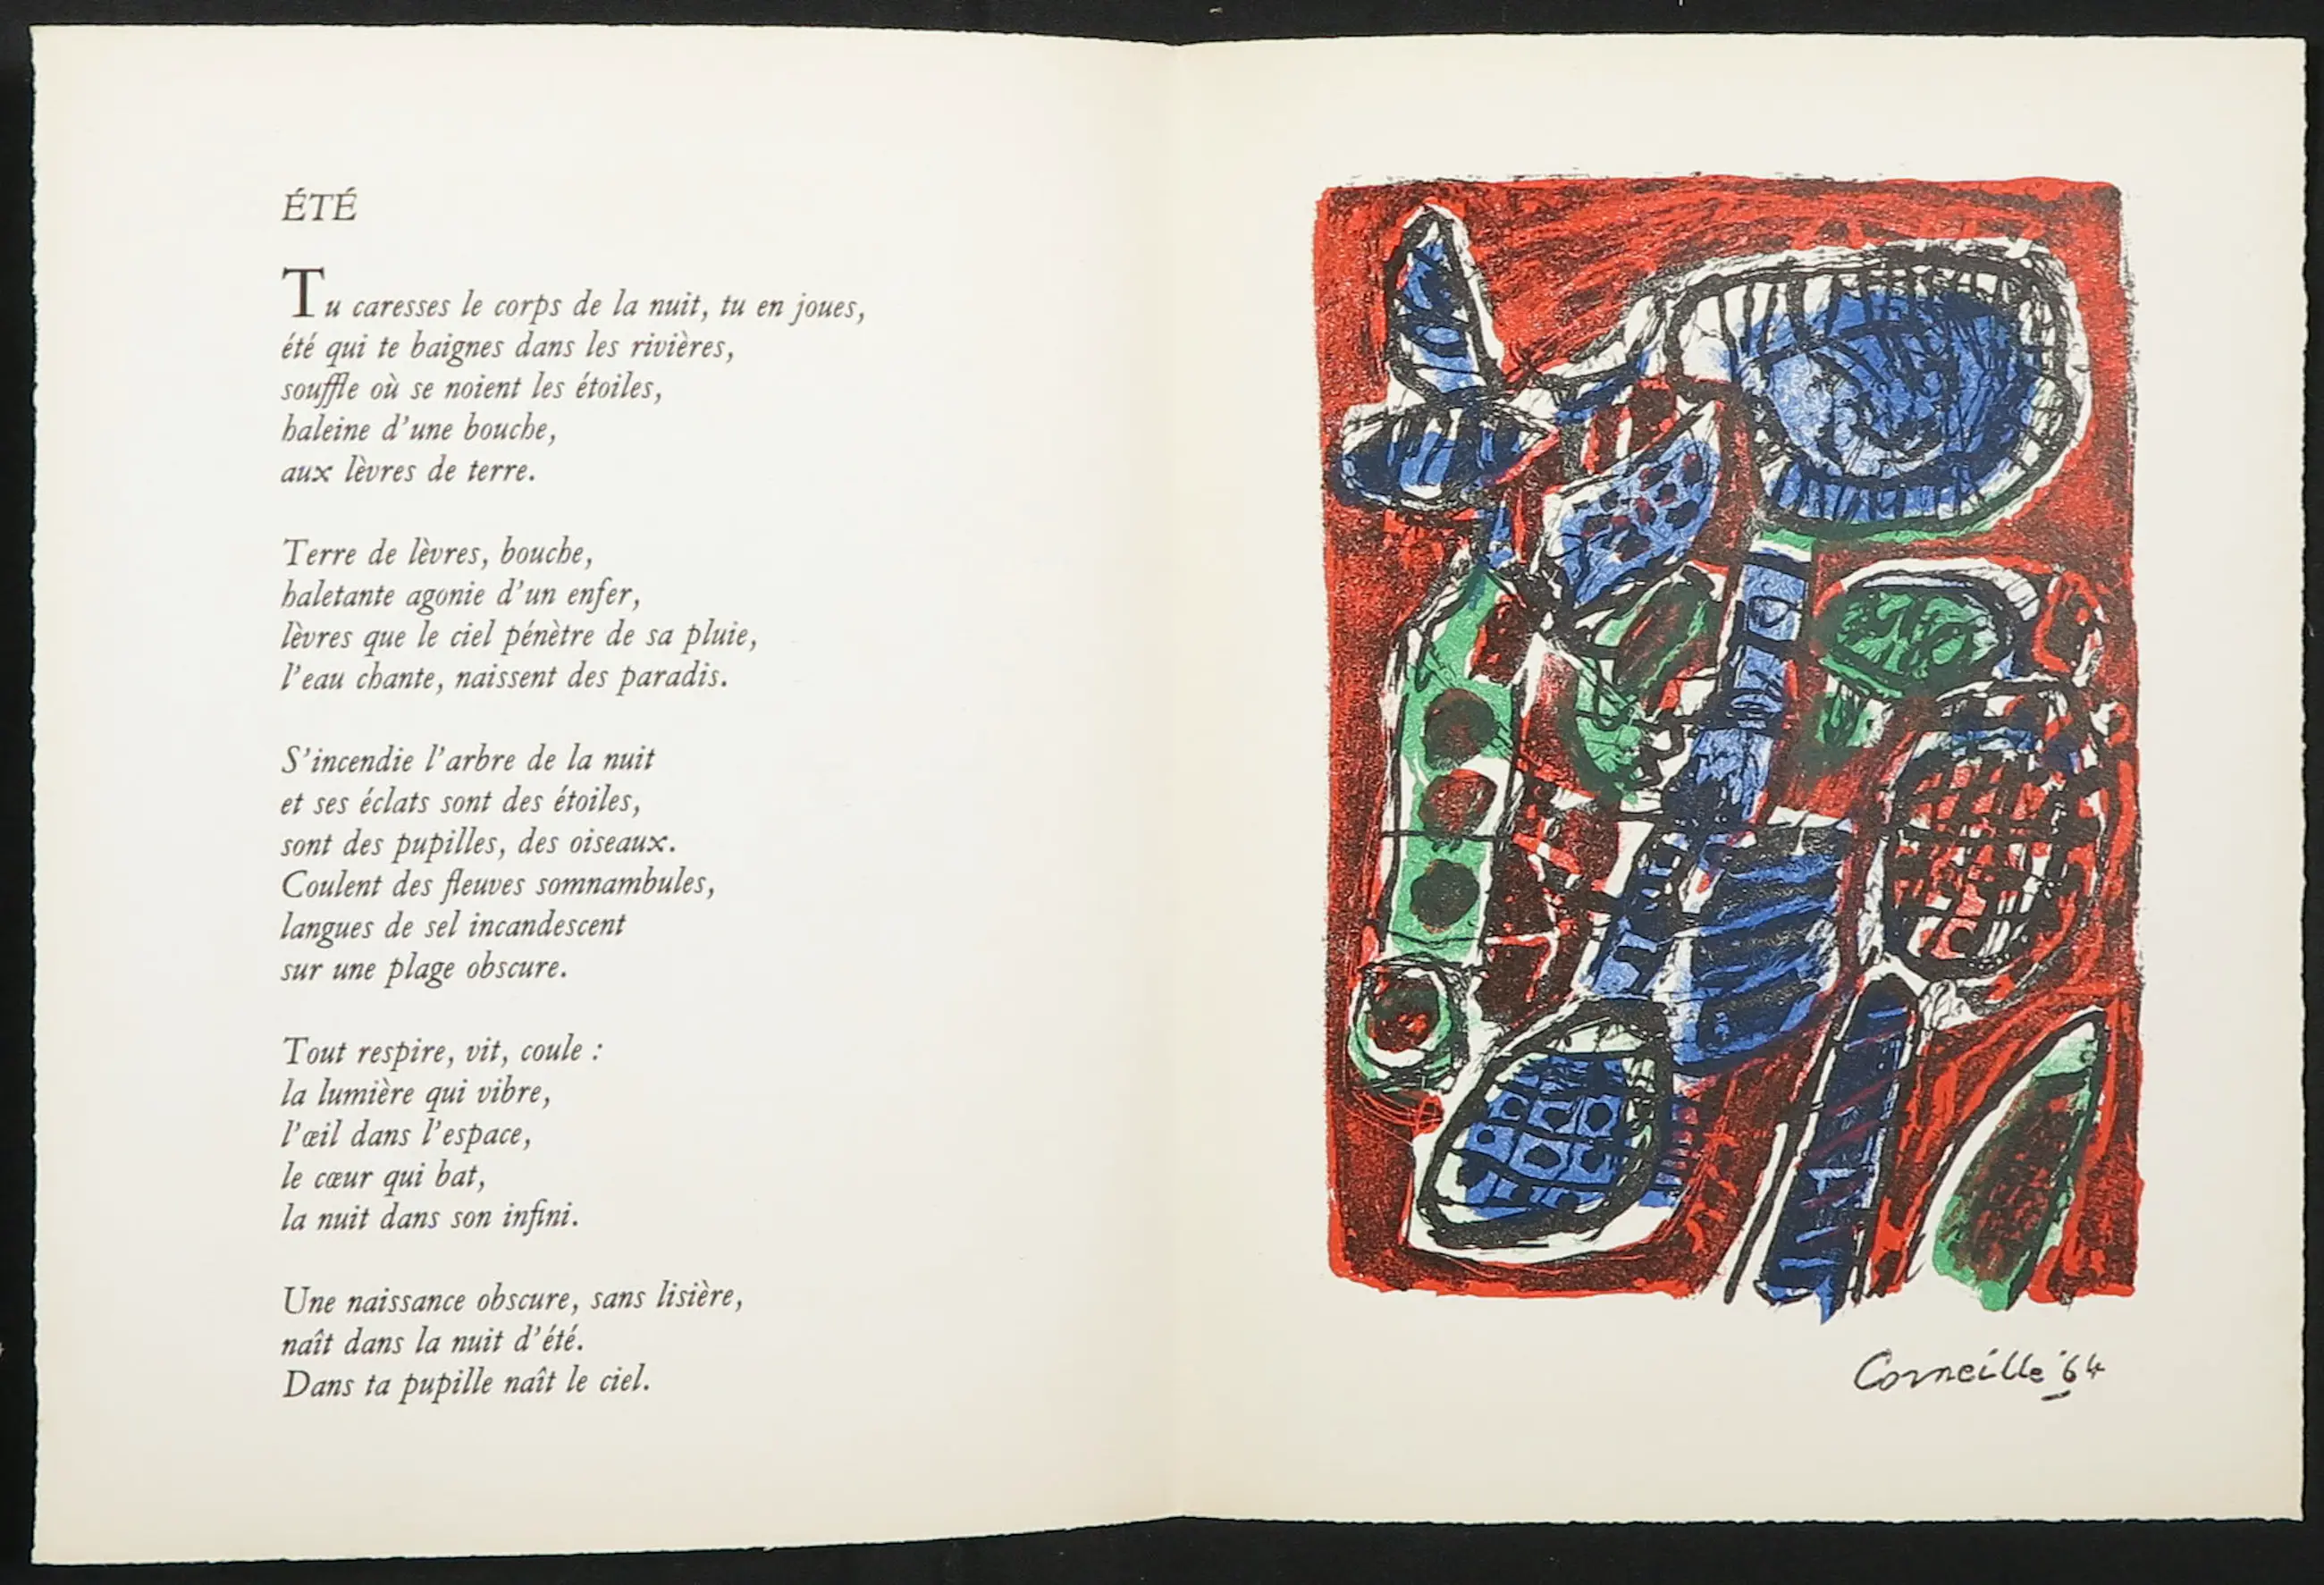 ÉTÉ
Tu caresses le corps de la nuit, tu en joues,
été qui te baignes dans les rivières,
souffle où se noient les étoiles,
haleine d'une bouche,
aux lèvres de terre.
Terre de lèvres, bouche,
haletante agonie d'un enfer,
lèvres que le ciel pénètre de sa pluie,
l'eau chante, naissent des paradis.
S'incendie l'arbre de la nuit
et ses éclats sont des étoiles,
sont des pupilles, des oiseaux.
Coulent des fleuves somnambules,
langues de sel incandescent
sur une plage obscure.
Tout respire, vit, coule :
la lumière qui vibre,
l'œil dans l'espace,
le cœur qui bat,
la nuit dans son infini.
Une naissance obscure, sans lisière,
naît dans la nuit d'été.
Dans ta pupille naît le ciel.
Corneille '64